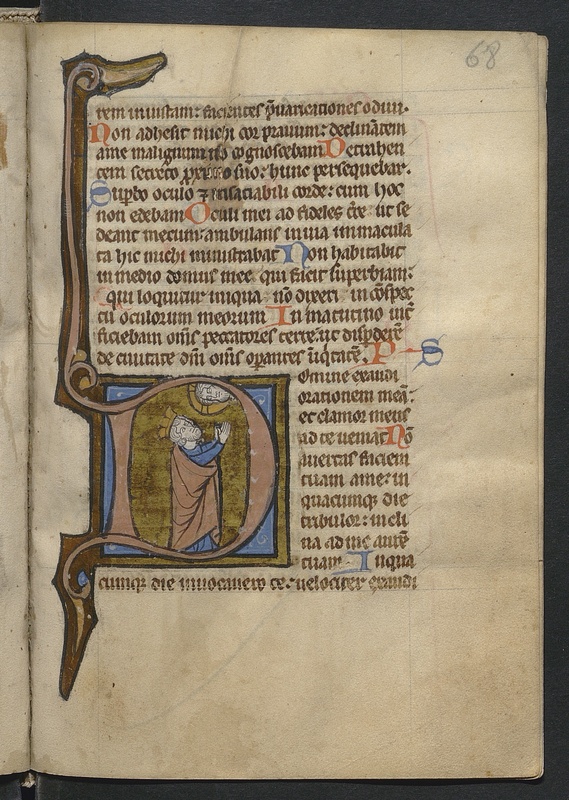 68
rem iniustam: facientes p̄uaricationes odiui.
Non adhesit michi cor prauum: declinātem
a me malignum nō cognoscebam Detrahen
tem secreto proximo suo: hunc persequebar.
Supbo oculo ⁊ insaciabili corde: cum hoc
non edebam Oculi mei ad fideles tr̄e: ut se
deant mecum: ambulans in uia immacula
ta hic michi ministrabat Non habitabit
in medio domus mee, qui facit superbiam:
qui loquitur iniqua nō direxit in cōspec
tu oculorum meorum In matutino int̄
ficiebam om̄s peccatores terre: ut disꝑderē
de ciuitate dn̄i om̄s oꝑantes iniq̇tatē. P S
Domine exaudi
orationem meā:
et clamor meus
ad te ueniat Nō
auertas faciem
tuam a me: in
quacumq; die
tribulor: incli
na ad me aurē
tuam In qua
cumq; die inuocauero te: uelociter exaudi